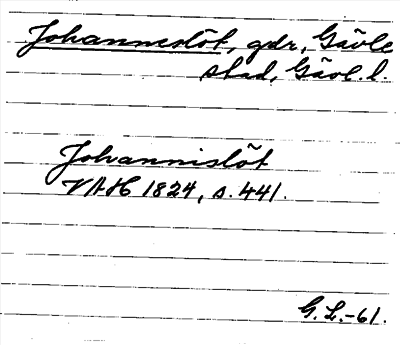 Johanneslöt, gdr, Gävle
stad, Gävl. l.
Johannislöt
VAH 1824, s. 441.
G. L. -61.